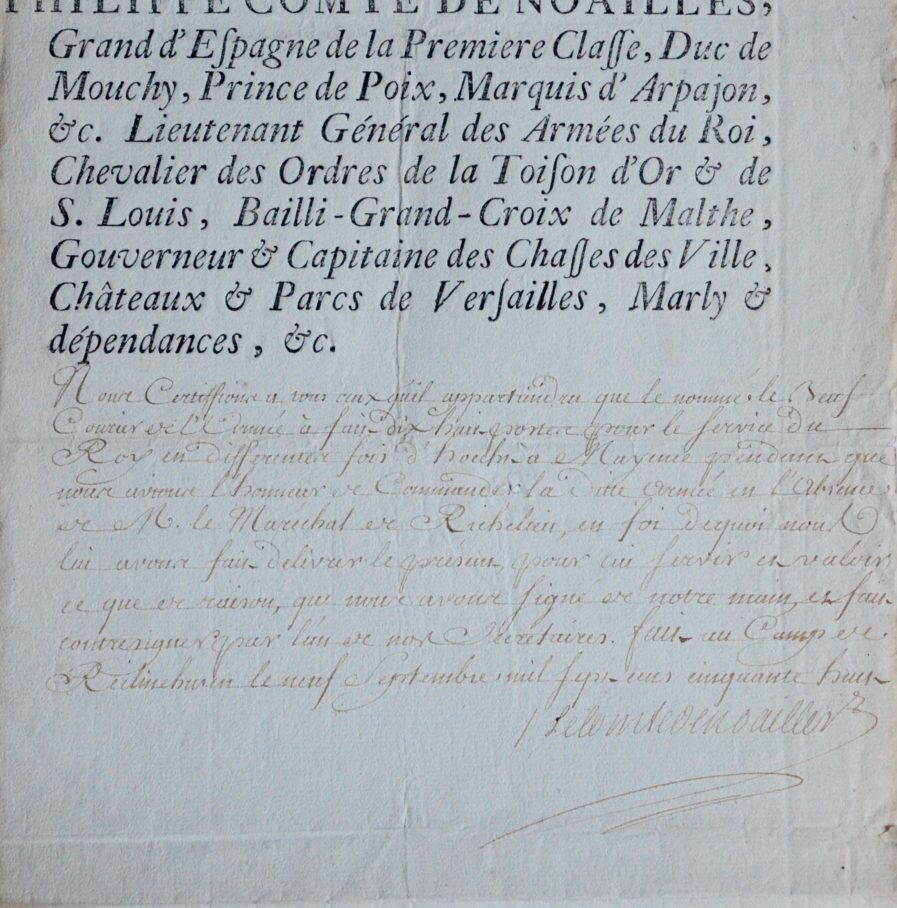 PHILIPPE COMTE DE NOAILLES,
Grand d'Eſpagne de la Premiere Claſſe, Duc de
Mouchy, Prince de Poix, Marquis d'Arpajon,
&c. Lieutenant Général des Armées du Roi,
Chevalier des Ordres de la Toiſon d'Or & de
S. Louis, Bailli-Grand-Croix de Malthe,
Gouverneur & Capitaine des Chaſſes des Ville,
Châteaux & Parcs de Verſailles, Marly &
dépendances, &c.
Nous Certiffions a tous ceux qu'il appartiendra que le nommé le Beuf
Courier de l'Armée à fait dix huit postes pour le service du
Roy en differentes fois d'hochst à Mayence pendant que
nous avions l'honneur de Commander la Dite Armée en l'absence
de M. le Maréchal de Richelieu, en foi dequoi nous
lui avons fait délivrer le présent pour lui servir et valoir
ce que de raison, que nous avons signé de notre main, et fait
contresigner par l'un de nos Secretaires. fait au Camp de
le neuf Septembre mil sept cens cinquante huit
Le Comte de noailles